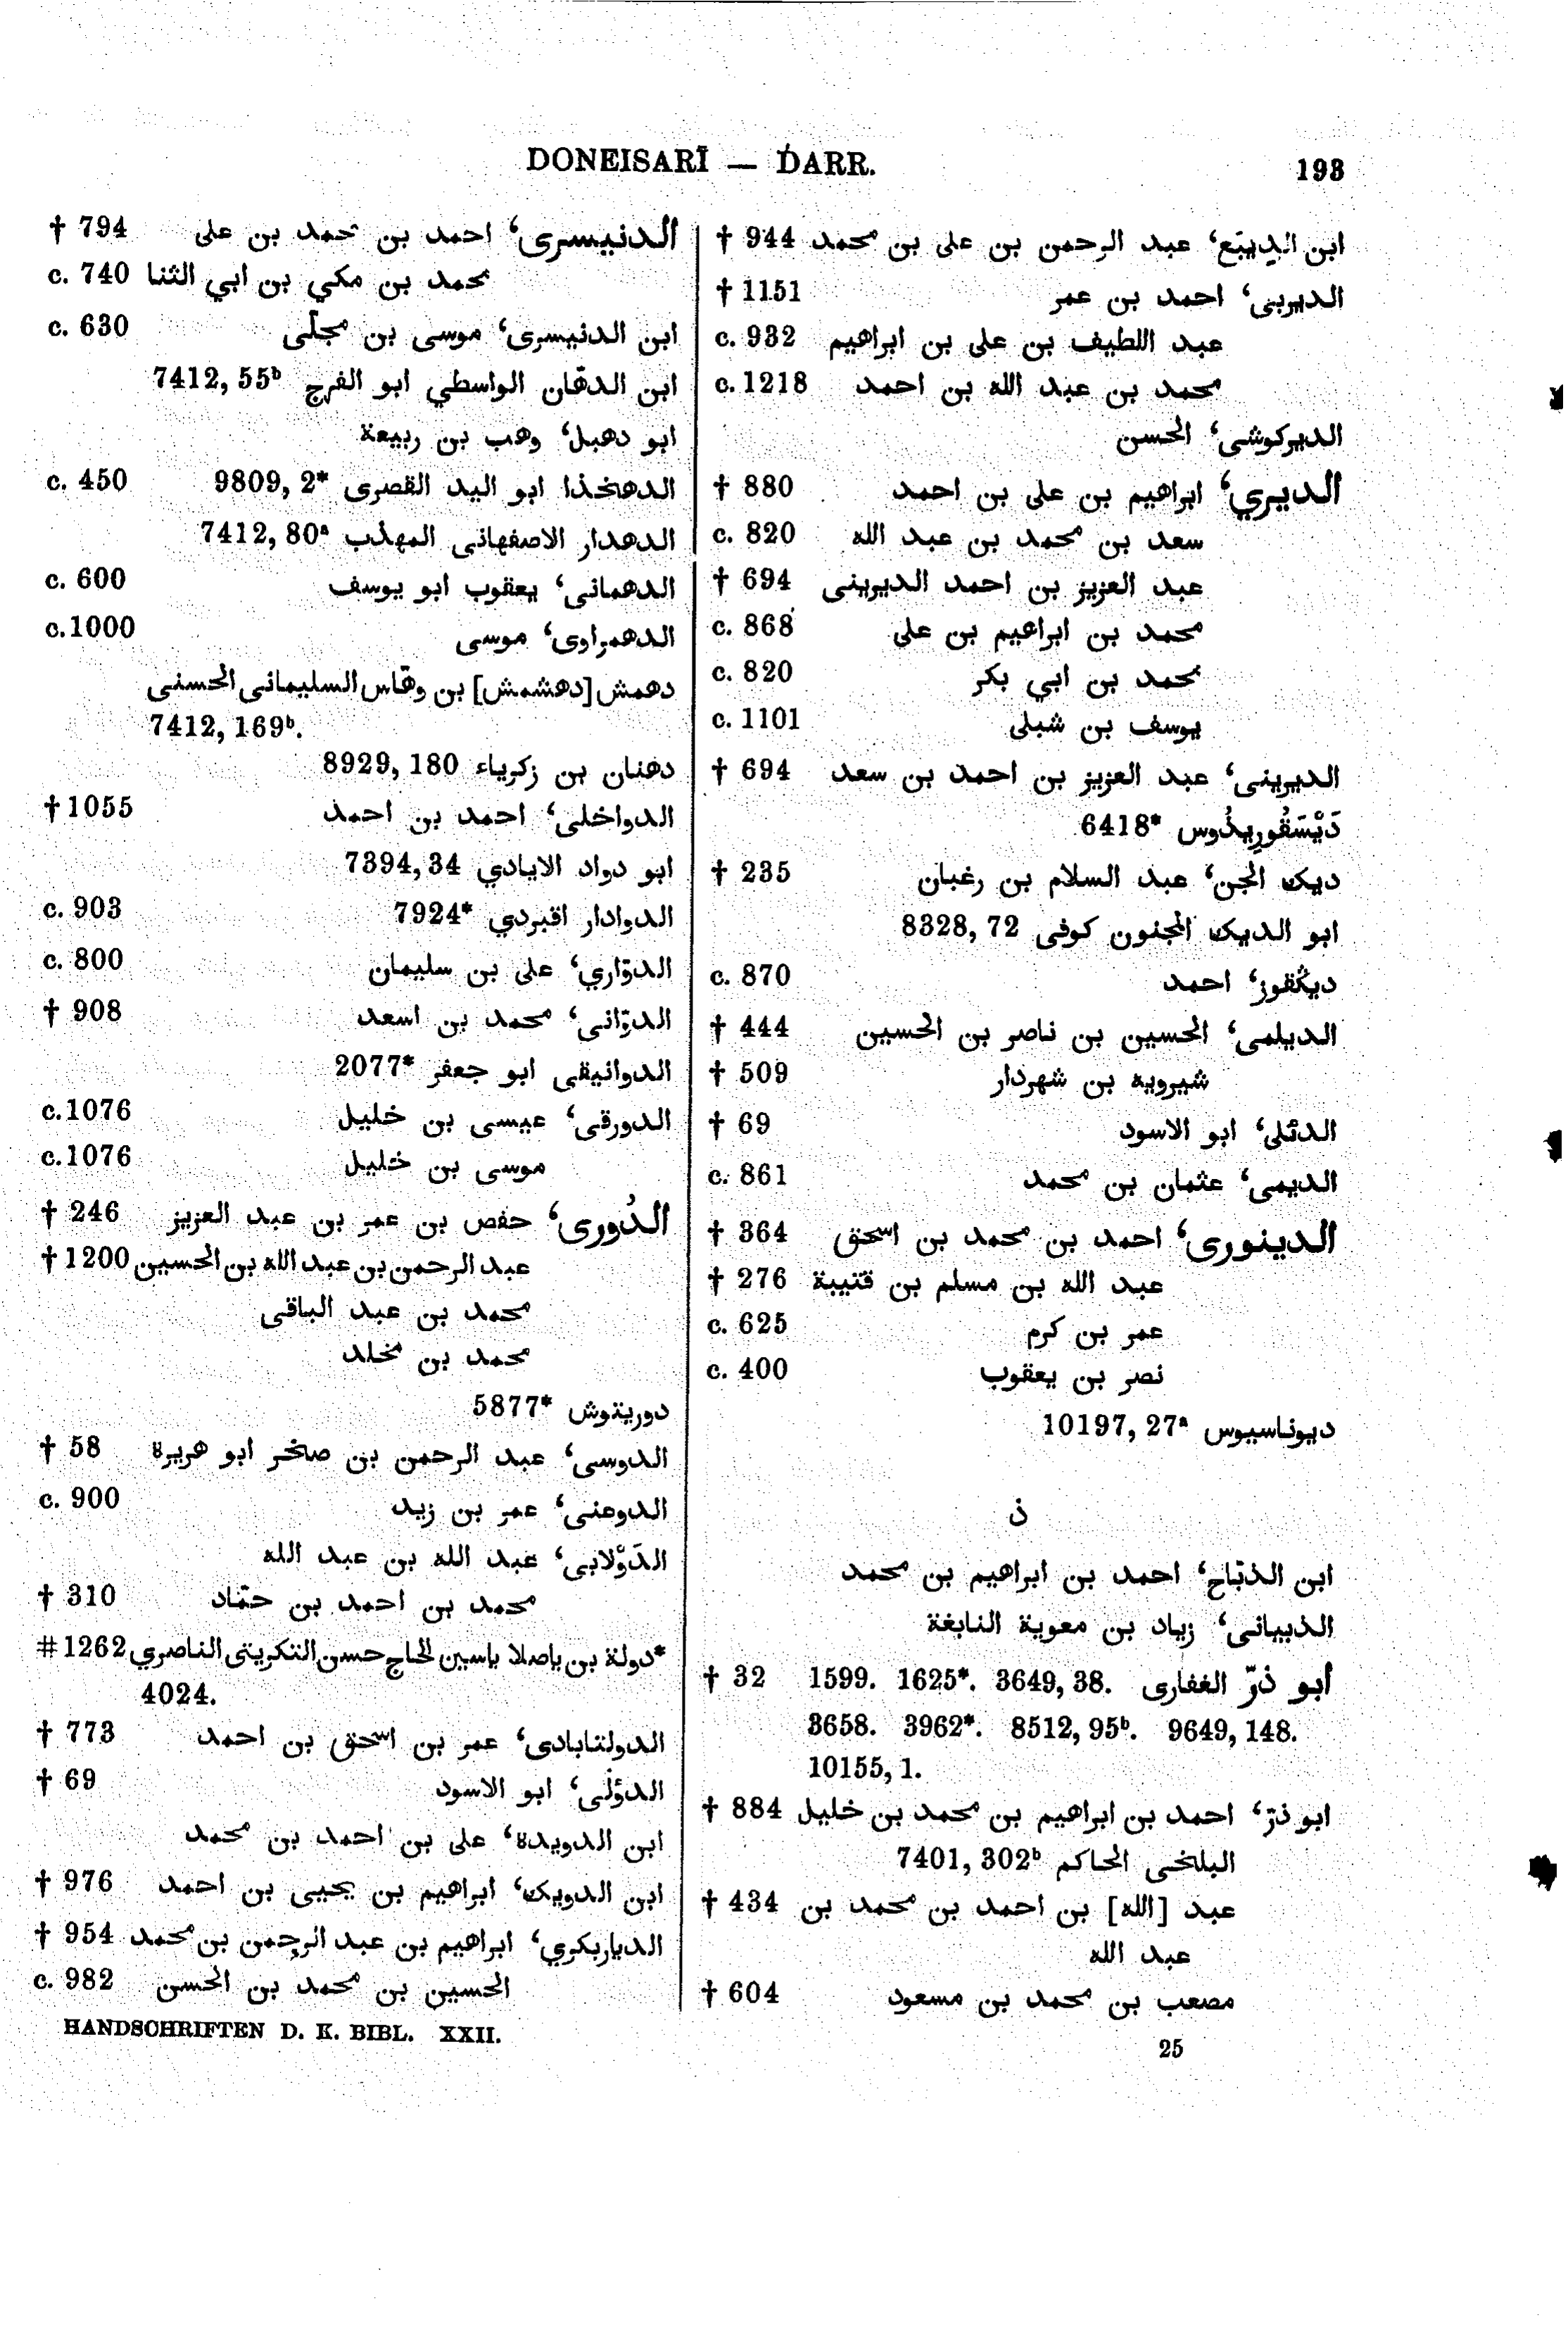 DONEISARĪ — ḎARR. 193
الدنيسرى، احمد بن محمد بن على † 794
محمد بن مكي بن ابي الثنا c. 740
ابن الدنيسرى، موسى بن مجلّى c. 630
ابن الدهّان الواسطي ابو الفرج 7412, 55ᵇ
ابو دهبل، وهب بن ربيعة
الدهخذا ابو اليد القصرى *9809, 2 c. 450
الدهدار الاصفهانى المهذب 7412, 80ᵃ
الدهمانى، يعقوب ابو يوسف c. 600
الدهمراوى، موسى c. 1000
دهمش [دهشمش] بن وهّاس السليمانى الحسنى
7412, 169ᵇ.
دهنان بن زكرياء 8929, 180
الدواخلى، احمد بن احمد † 1055
ابو دواد الايادي 7394, 34
الدوادار اقبردي *7924 c. 903
الدوّاري، على بن سليمان c. 800
الدوّانى، محمد بن اسعد † 908
الدوانيقى ابو جعفر *2077
الدورقى، عيسى بن خليل c. 1076
موسى بن خليل c. 1076
الدُورى، حفص بن عمر بن عبد العزيز † 246
عبد الرحمن بن عبد الله بن الحسين † 1200
محمد بن عبد الباقى
محمد بن مخلد
دورينوش *5877
الدوسى، عبد الرحمن بن صخر ابو هريرة † 58
الدوعنى، عمر بن زيد c. 900
الدَوْلابى، عبد الله بن عبد الله
محمد بن احمد بن حمّاد † 310
*دولة بن ياصلا ياسين لحاج حسن التكريتى الناصري 1262 #
4024.
الدولتابادى، عمر بن اسحق بن احمد † 773
الدؤلى، ابو الاسود † 69
ابن الدويدة، على بن احمد بن محمد
ابن الدويك، ابراهيم بن يحيى بن احمد † 976
الدياربكري، ابراهيم بن عبد الرحمن بن محمد † 954
الحسين بن محمد بن الحسن c. 982
ابن الديبع، عبد الرحمن بن على بن محمد † 944
الديربى، احمد بن عمر † 1151
عبد اللطيف بن على بن ابراهيم c. 932
محمد بن عبد الله بن احمد c. 1218
الديركوشى، الحسن
الديري، ابراهيم بن على بن احمد † 880
سعد بن محمد بن عبد الله c. 820
عبد العزيز بن احمد الديرينى † 694
محمد بن ابراهيم بن على c. 868
محمد بن ابي بكر c. 820
يوسف بن شبلى c. 1101
الديرينى، عبد العزيز بن احمد بن سعد † 694
دَيْسَقُورِيذُوس *6418
ديك الجن، عبد السلام بن رغبان † 235
ابو الديك المجنون كوفى 8328, 72
ديكقوز، احمد c. 870
الديلمى، الحسين بن ناصر بن الحسين † 444
شيرويه بن شهردار † 509
الدئلى، ابو الاسود † 69
الديمى، عثمان بن محمد c. 861
الدينورى، احمد بن محمد بن اسحق † 364
عبد الله بن مسلم بن قتيبة † 276
عمر بن كرم c. 625
نصر بن يعقوب c. 400
ديوناسيوس 10197, 27ᵃ
ذ
ابن الذبّاح، احمد بن ابراهيم بن محمد
الذبيانى، زياد بن معوية النابغة
أبو ذرّ الغفارى 1599. 1625*. 3649, 38. † 32
3658. 3962*. 8512, 95ᵇ. 9649, 148.
10155, 1.
ابو ذرّ، احمد بن ابراهيم بن محمد بن خليل † 884
البلخى الحاكم 7401, 302ᵇ
عبد [الله] بن احمد بن محمد بن † 434
عبد الله
مصعب بن محمد بن مسعود † 604
HANDSCHRIFTEN D. K. BIBL. XXII. 25